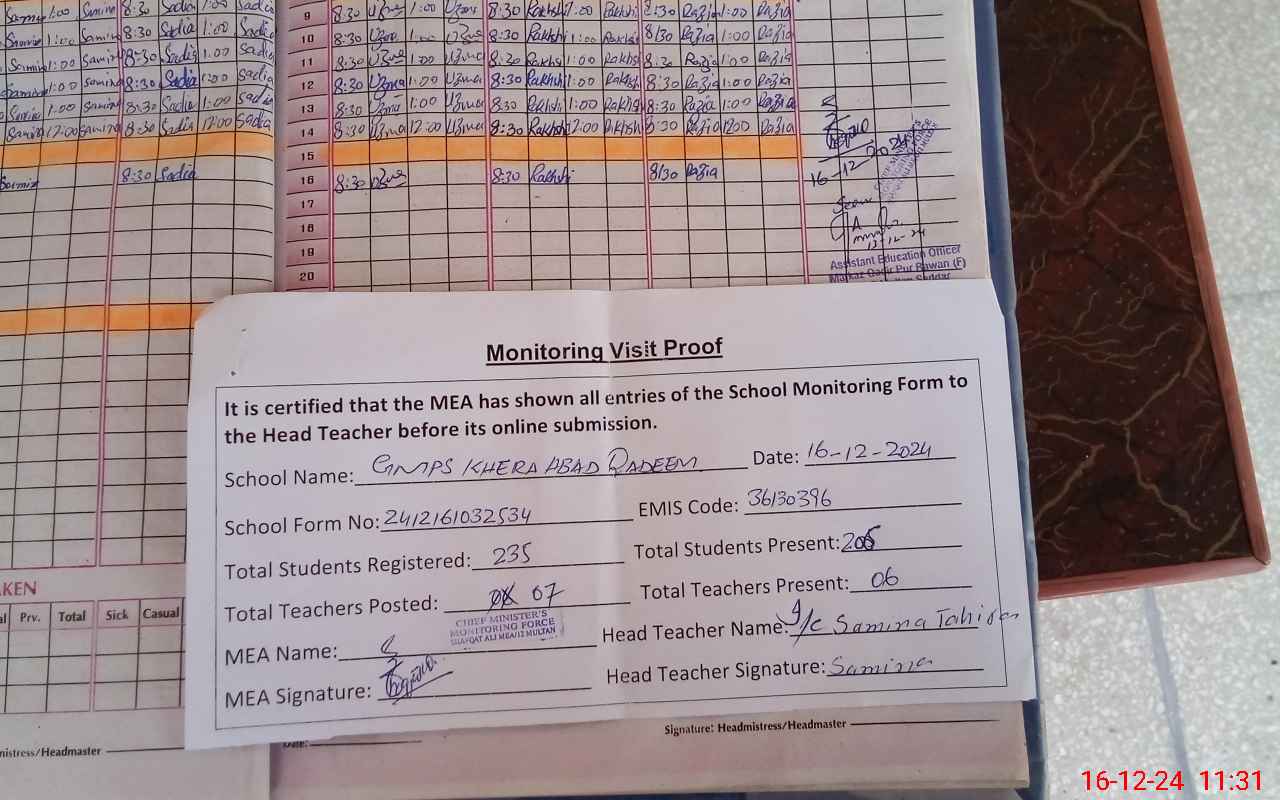 Samina 1:00 Samina 8:30 Sadia 1:00 Sadia
9 8:30 Uzma 1:00 Uzma 8:30 Rakhshi 1:00 Rakhshi 8:30 Razia 1:00 Razia
Samina 1:00 Samina 8:30 Sadia 1:00 Sadia
10 8:30 Uzma 1:00 Uzma 8:30 Rakhshi 1:00 Rakhshi 8:30 Razia 1:00 Razia
Samina 1:00 Samina 8:30 Sadia 1:00 Sadia
11 8:30 Uzma 1:00 Uzma 8:30 Rakhshi 1:00 Rakhshi 8:30 Razia 1:00 Razia
Samina 1:00 Samina 8:30 Sadia 1:00 sadia
12 8:30 Uzma 1:00 Uzma 8:30 Rakhshi 1:00 Rakhshi 8:30 Razia 1:00 Razia
Samina 1:00 Samina 8:30 Sadia 1:00 sadia
13 8:30 Uzma 1:00 Uzma 8:30 Rakhshi 1:00 Rakhshi 8:30 Razia 1:00 Razia
Samina 12:00 Samina 8:30 Sadia 12:00 sadia
14 8:30 Uzma 12:00 Uzma 8:30 Rakhshi 12:00 Rakhshi 8:30 Razia 12:00 Razia
15
Samina 8:30 Sadia
16 8:30 Uzma 8:30 Rakhshi 8:30 Razia
17
18
19
20
16-12-2024
Seen
13-12-24
Assistant Education Officer
Markaz Qadir Pur Rawan (F)
Saddar
Monitoring Visit Proof
It is certified that the MEA has shown all entries of the School Monitoring Form to
the Head Teacher before its online submission.
School Name: GMPS KHERA ABAD QADEEM Date: 16-12-2024
School Form No: 2412161032534 EMIS Code: 36130396
Total Students Registered: 235 Total Students Present: 205
Total Teachers Posted: 07 Total Teachers Present: 06
CHIEF MINISTER'S
MONITORING FORCE
SHAFQAT ALI MEA/12 MULTAN
MEA Name: Head Teacher Name: I/C Samina Tahir
MEA Signature: Head Teacher Signature: Samina
AKEN
Prv. Total Sick Casual
mistress/Headmaster
Date:
Signature: Headmistress/Headmaster
16-12-24 11:31